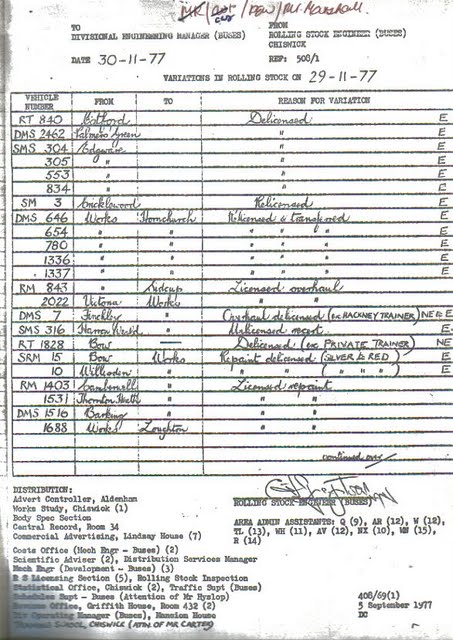 TO
DIVISIONAL ENGINEERING MANAGER (BUSES)
FROM
ROLLING STOCK ENGINEER (BUSES)
CHISWICK
DATE 30-11-77
REF: 508/1
VARIATIONS IN ROLLING STOCK ON 29-11-77
VEHICLE NUMBER FROM TO REASON FOR VARIATION
RT 840 Catford Delicensed E
DMS 2462 Palmers Green " E
SMS 304 Edgware " E
305 " " E
553 " " E
834 " " E
SM 3 Cricklewood Relicensed E
DMS 646 Works Hornchurch Relicensed & transferred E
654 " " " " " E
780 " " " " " E
1336 " " " " " E
1337 " " " " " E
RM 843 " Sidcup Licensed overhaul
2022 Victoria Works " "
DMS 7 Finchley " Overhaul delicensed (ex HACKNEY TRAINER) NE E
SMS 316 Harrow Weald " Unlicensed recert. E
RT 1828 Bow — Delicensed (ex PRIVATE TRAINER) NE
SRM 15 Bow Works Repaint delicensed (SILVER & RED) E
10 Willesden " " " ( " " " ) E
RM 1403 Camberwell " Licensed repaint
1531 Thornton Heath " " "
DMS 1516 Barking " " "
1688 Works Loughton " "
continued over
DISTRIBUTION:
Advert Controller, Aldenham
Works Study, Chiswick (1)
Body Spec Section
Central Record, Room 34
Commercial Advertising, Lindsay House (7)
Costs Office (Mech Engr - Buses) (2)
Scientific Adviser (2), Distribution Services Manager
Mech Engr (Development - Buses) (3)
R S Licensing Section (5), Rolling Stock Inspection
Statistical Office, Chiswick (2), Traffic Supt (Buses)
Schedules Supt - Buses (Attention of Mr Hyslop)
Revenue Office, Griffith House, Room 432 (2)
Div Operating Manager (Buses), Mansion House
TRAINING SCHOOL, CHISWICK (ATTN. OF MR CARTER)
ROLLING STOCK ENGINEER (BUSES)
AREA ADMIN ASSISTANTS: Q (9), AR (12), W (12),
TL (13), WH (11), AV (12), NX (10), WN (15),
R (14)
408/69(1)
5 September 1977
DC